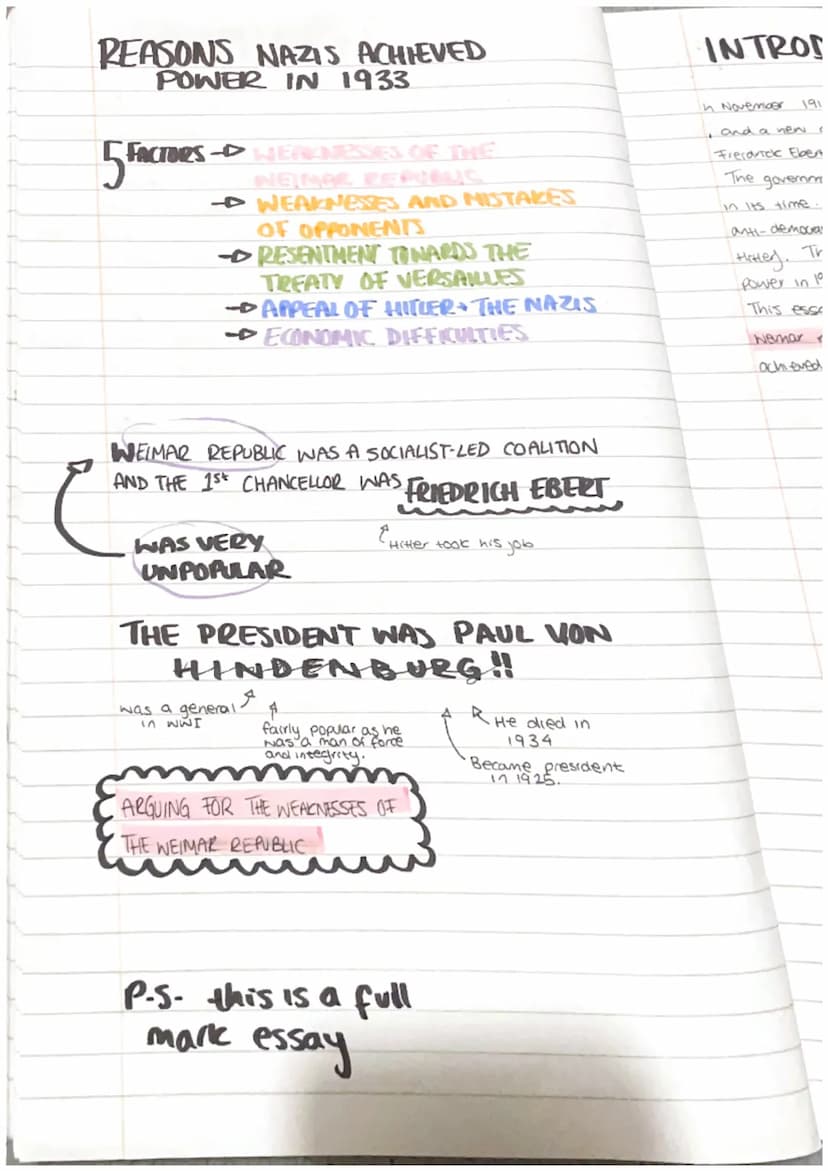 REASONS NAZIS ACHIEVED
POWER IN 1933
5 FACTORS → WEAKNESSES OF THE
WEIMAR REPUBLIC
→ WEAKNESSES AND MISTAKES
OF OPPONENTS
→ RESENTMENT TOWARDS THE
TREATY OF VERSAILLES
→ APPEAL OF HITLER + THE NAZIS
→ ECONOMIC DIFFICULTIES
WEIMAR REPUBLIC WAS A SOCIALIST-LED COALITION
AND THE 1st CHANCELLOR WAS FRIEDRICH EBERT
Hitler took his job
WAS VERY
UNPOPULAR
THE PRESIDENT WAS PAUL VON
HINDENBURG!!
was a general
in WWI
fairly popular as he
was a man of force
and integrity.
He died in
1934
Became president
in 1925.
ARGUING FOR THE WEAKNESSES OF
THE WEIMAR REPUBLIC
P.S. this is a full
mark essay
INTROD
n November 191
, and a new
Frerdrick Eber
The governm
in its time.
anti-democra
Hitler). Th
power in 19
This essa
Weimar
achieved